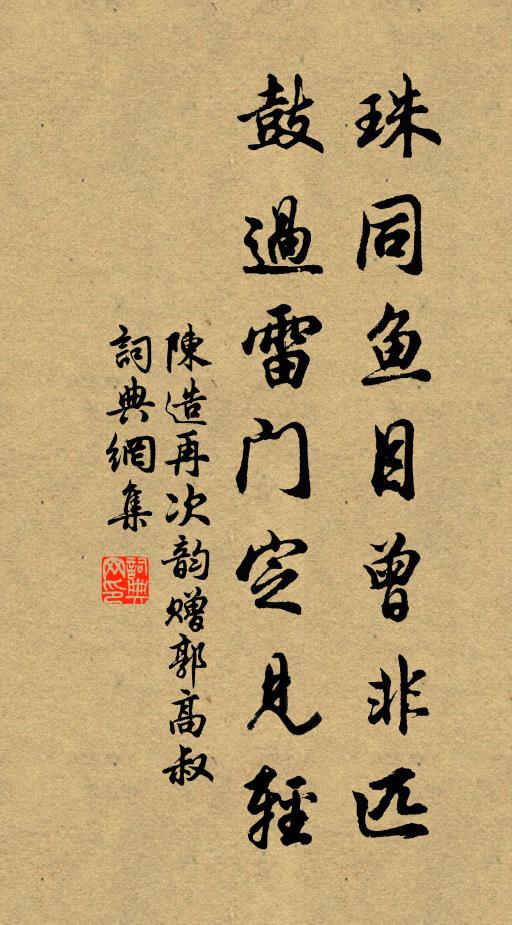 珠同鱼目曾非匹
鼓過雷门定見輕
陳造再次韵赠郭高叔
詞典網集
詞典网印